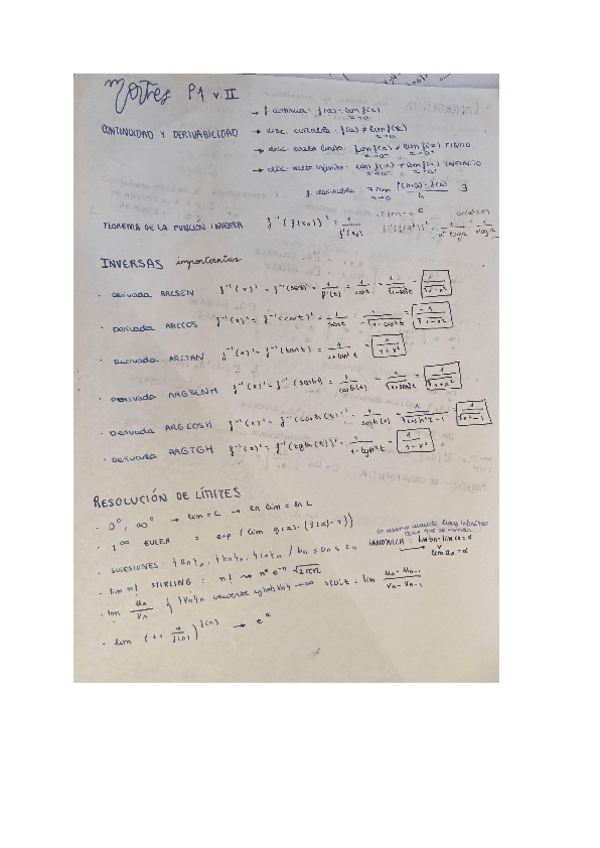 Mates P1 v.II
CONTINUIDAD Y DERIVABILIDAD
→ f continua: f(a) = lim f(x) x→a
→ disc. evitable: f(a) ≠ lim f(x) x→a
→ disc. salto finito: lim f(x) x→a⁻ ≠ lim f(x) x→a⁺ FINITO
→ disc. salto infinito: lim f(x) x→a⁻ ≠ lim f(x) x→a⁺ INFINITO
f. derivable: lim f(h+a) - f(a) / h ∃
TEOREMA DE LA FUNCIÓN INVERSA f⁻¹(f(x₀))' = 1/f'(x₀)
INVERSAS importantes
· Derivada ARCSEN f⁻¹(x)' = f⁻¹(sen t)' = 1/f'(t) = 1/cos t = 1/√(1-sen²t) = 1/√(1-x²)
· Derivada ARCCOS f⁻¹(x)' = f⁻¹(cos t)' = 1/sen t = 1/-√(1-cos²t) = -1/√(1-x²)
· Derivada ARCTAN f⁻¹(x)' = f⁻¹(tan t) = 1/1+tan²t = 1/1+x²
· Derivada ARGSENH f⁻¹(x)' = f⁻¹(senh t) = 1/cosh(t) = 1/√(1+senh²t) = 1/√(1+x²)
· Derivada ARGCOSH f⁻¹(x)' = f⁻¹(cosh(t))' = 1/senh(t) = 1/√(cosh²t-1) = 1/√(x²-1)
· Derivada ARGTGH f⁻¹(x)' = f⁻¹(tgh(t))' = 1/1-tgh²t = 1/1-x²
RESOLUCIÓN DE LÍMITES
· 0⁰, ∞⁰ → lim = L → ln lim = ln L
· 1^∞ EULER = exp(lim g(x)·(f(x)-1))
· SUCESIONES {an}n, {bn}n, {cn}n / bn ≤ an ≤ cn
SANDWICH = lim bn = lim cn = a
lim an = a
· lim n! STIRLING: n! ~ nⁿ e⁻ⁿ √2πn
· lim Un/Vn {Vn}n creciente STOLZ = lim Un - Un-1 / Vn - Vn-1
· lim (1 + 1/f(n))^f(n) → e